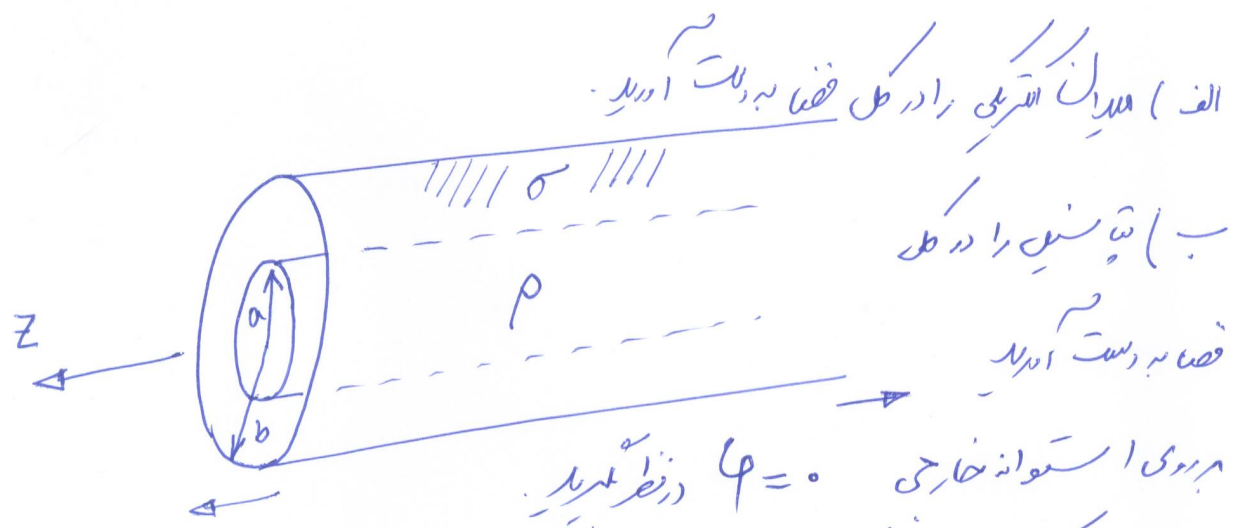 الف) میدان الکتریکی را در کل فضا به دست آورید.
σ
ب) پتانسیل را در کل
ρ
a
Z
فضا به دست آورید
b
بر روی استوانه خارجی φ = 0 در نظر بگیرید.